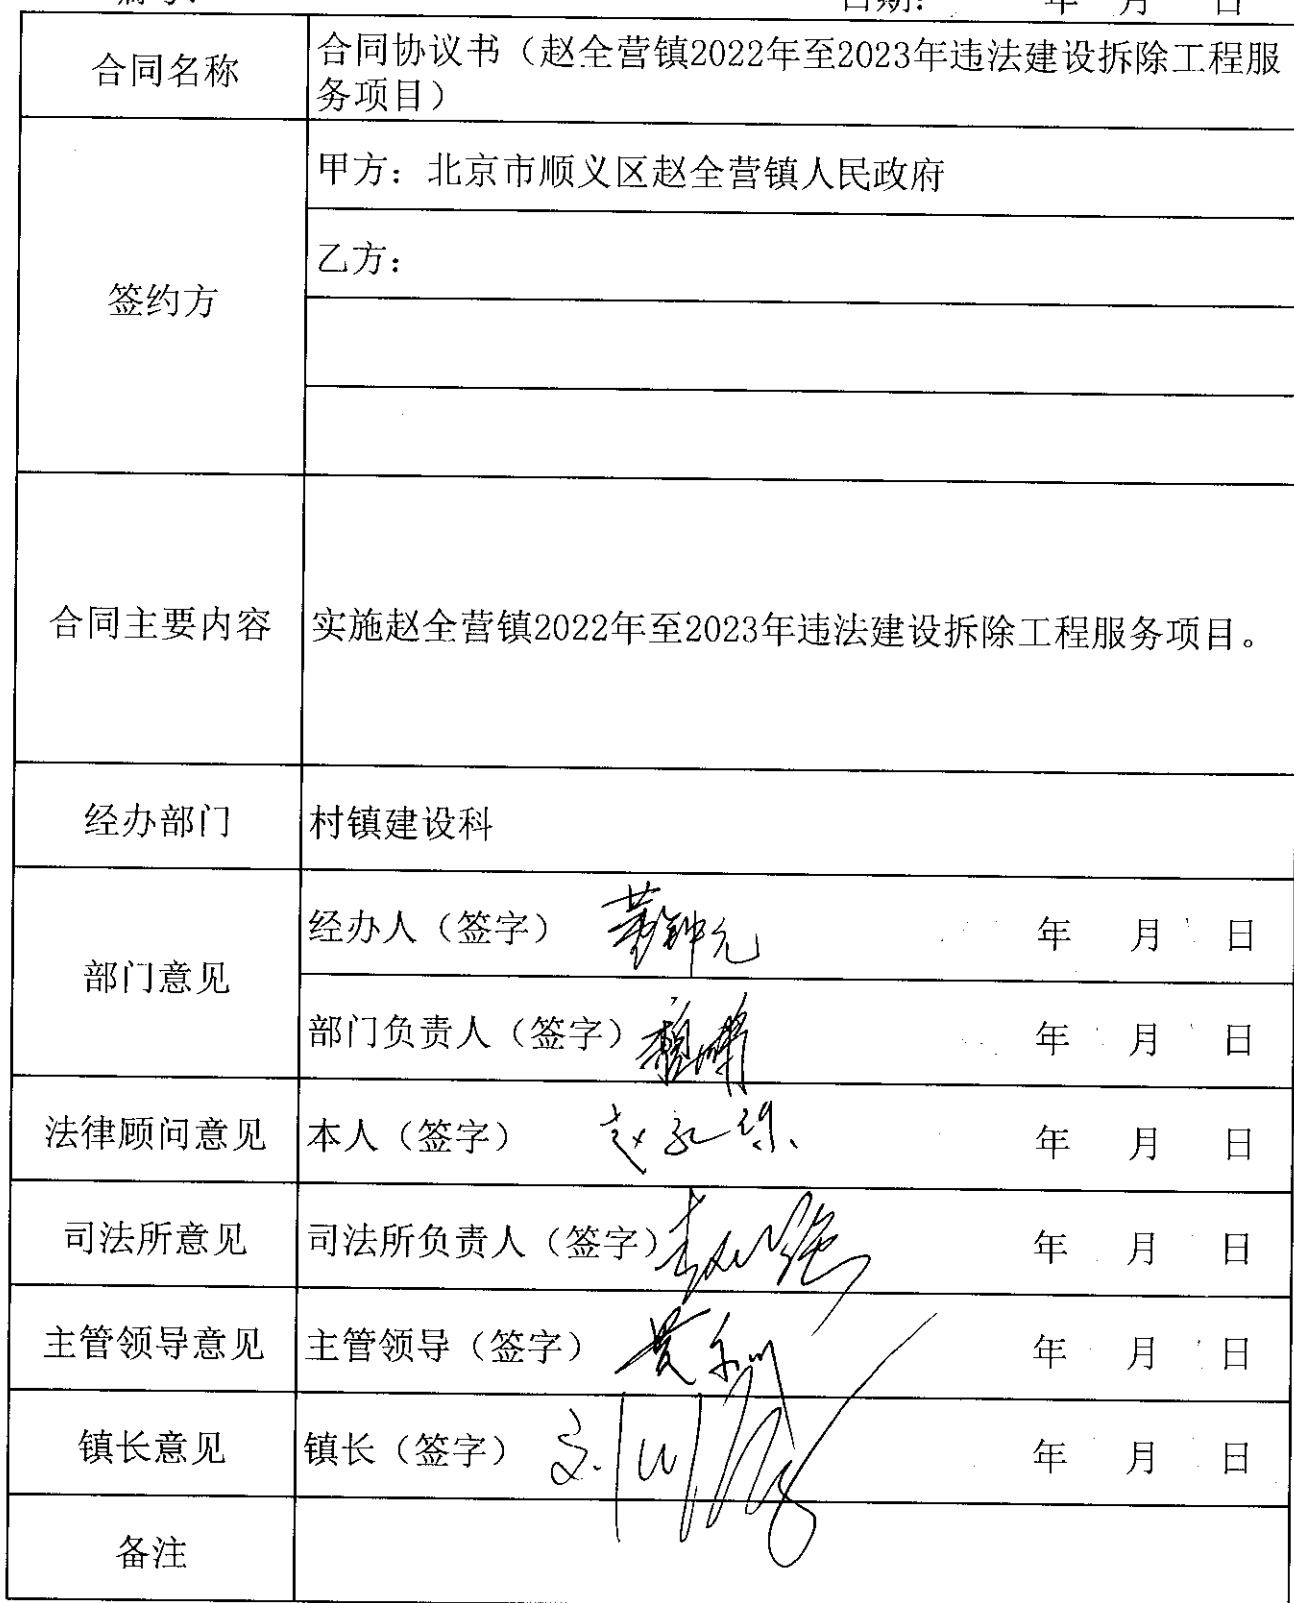 日期： 年 月 日
合同名称
合同协议书（赵全营镇2022年至2023年违法建设拆除工程服
务项目）
签约方
甲方：北京市顺义区赵全营镇人民政府
乙方：
合同主要内容
实施赵全营镇2022年至2023年违法建设拆除工程服务项目。
经办部门
村镇建设科
部门意见
经办人（签字） 年 月 日
部门负责人（签字） 年 月 日
法律顾问意见
本人（签字） 年 月 日
司法所意见
司法所负责人（签字） 年 月 日
主管领导意见
主管领导（签字） 年 月 日
镇长意见
镇长（签字） 年 月 日
备注